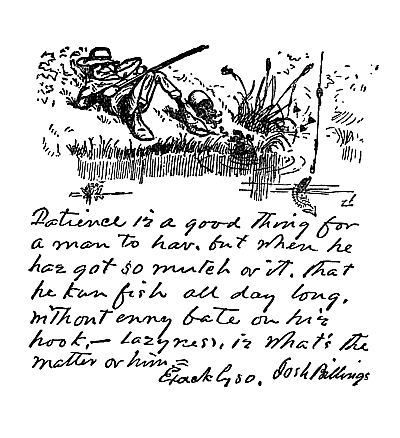 Patience iz a good thing for
a man to hav, but when he
haz got so mutch ov it, that
he kan fish all day long,
without enny bate on hiz
hook, — lazyness, iz what's the
matter ov him, =
Exackly so. Josh Billings